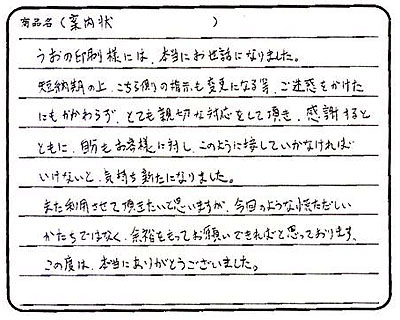 商品名（案内状　　　）
うおの印刷様には、本当にお世話になりました。
短納期の上、こちら側の指示も変更になる等、ご迷惑をかけた
にもかかわらず、とても親切な対応をして頂き、感謝すると
ともに、自分もお客様に対し、このように接していかなければ
いけないと、気持ち新たになりました。
また利用させて頂きたいと思いますが、今回のような慌ただしい
かたちではなく、余裕をもってお願いできればと思っております。
この度は、本当にありがとうございました。